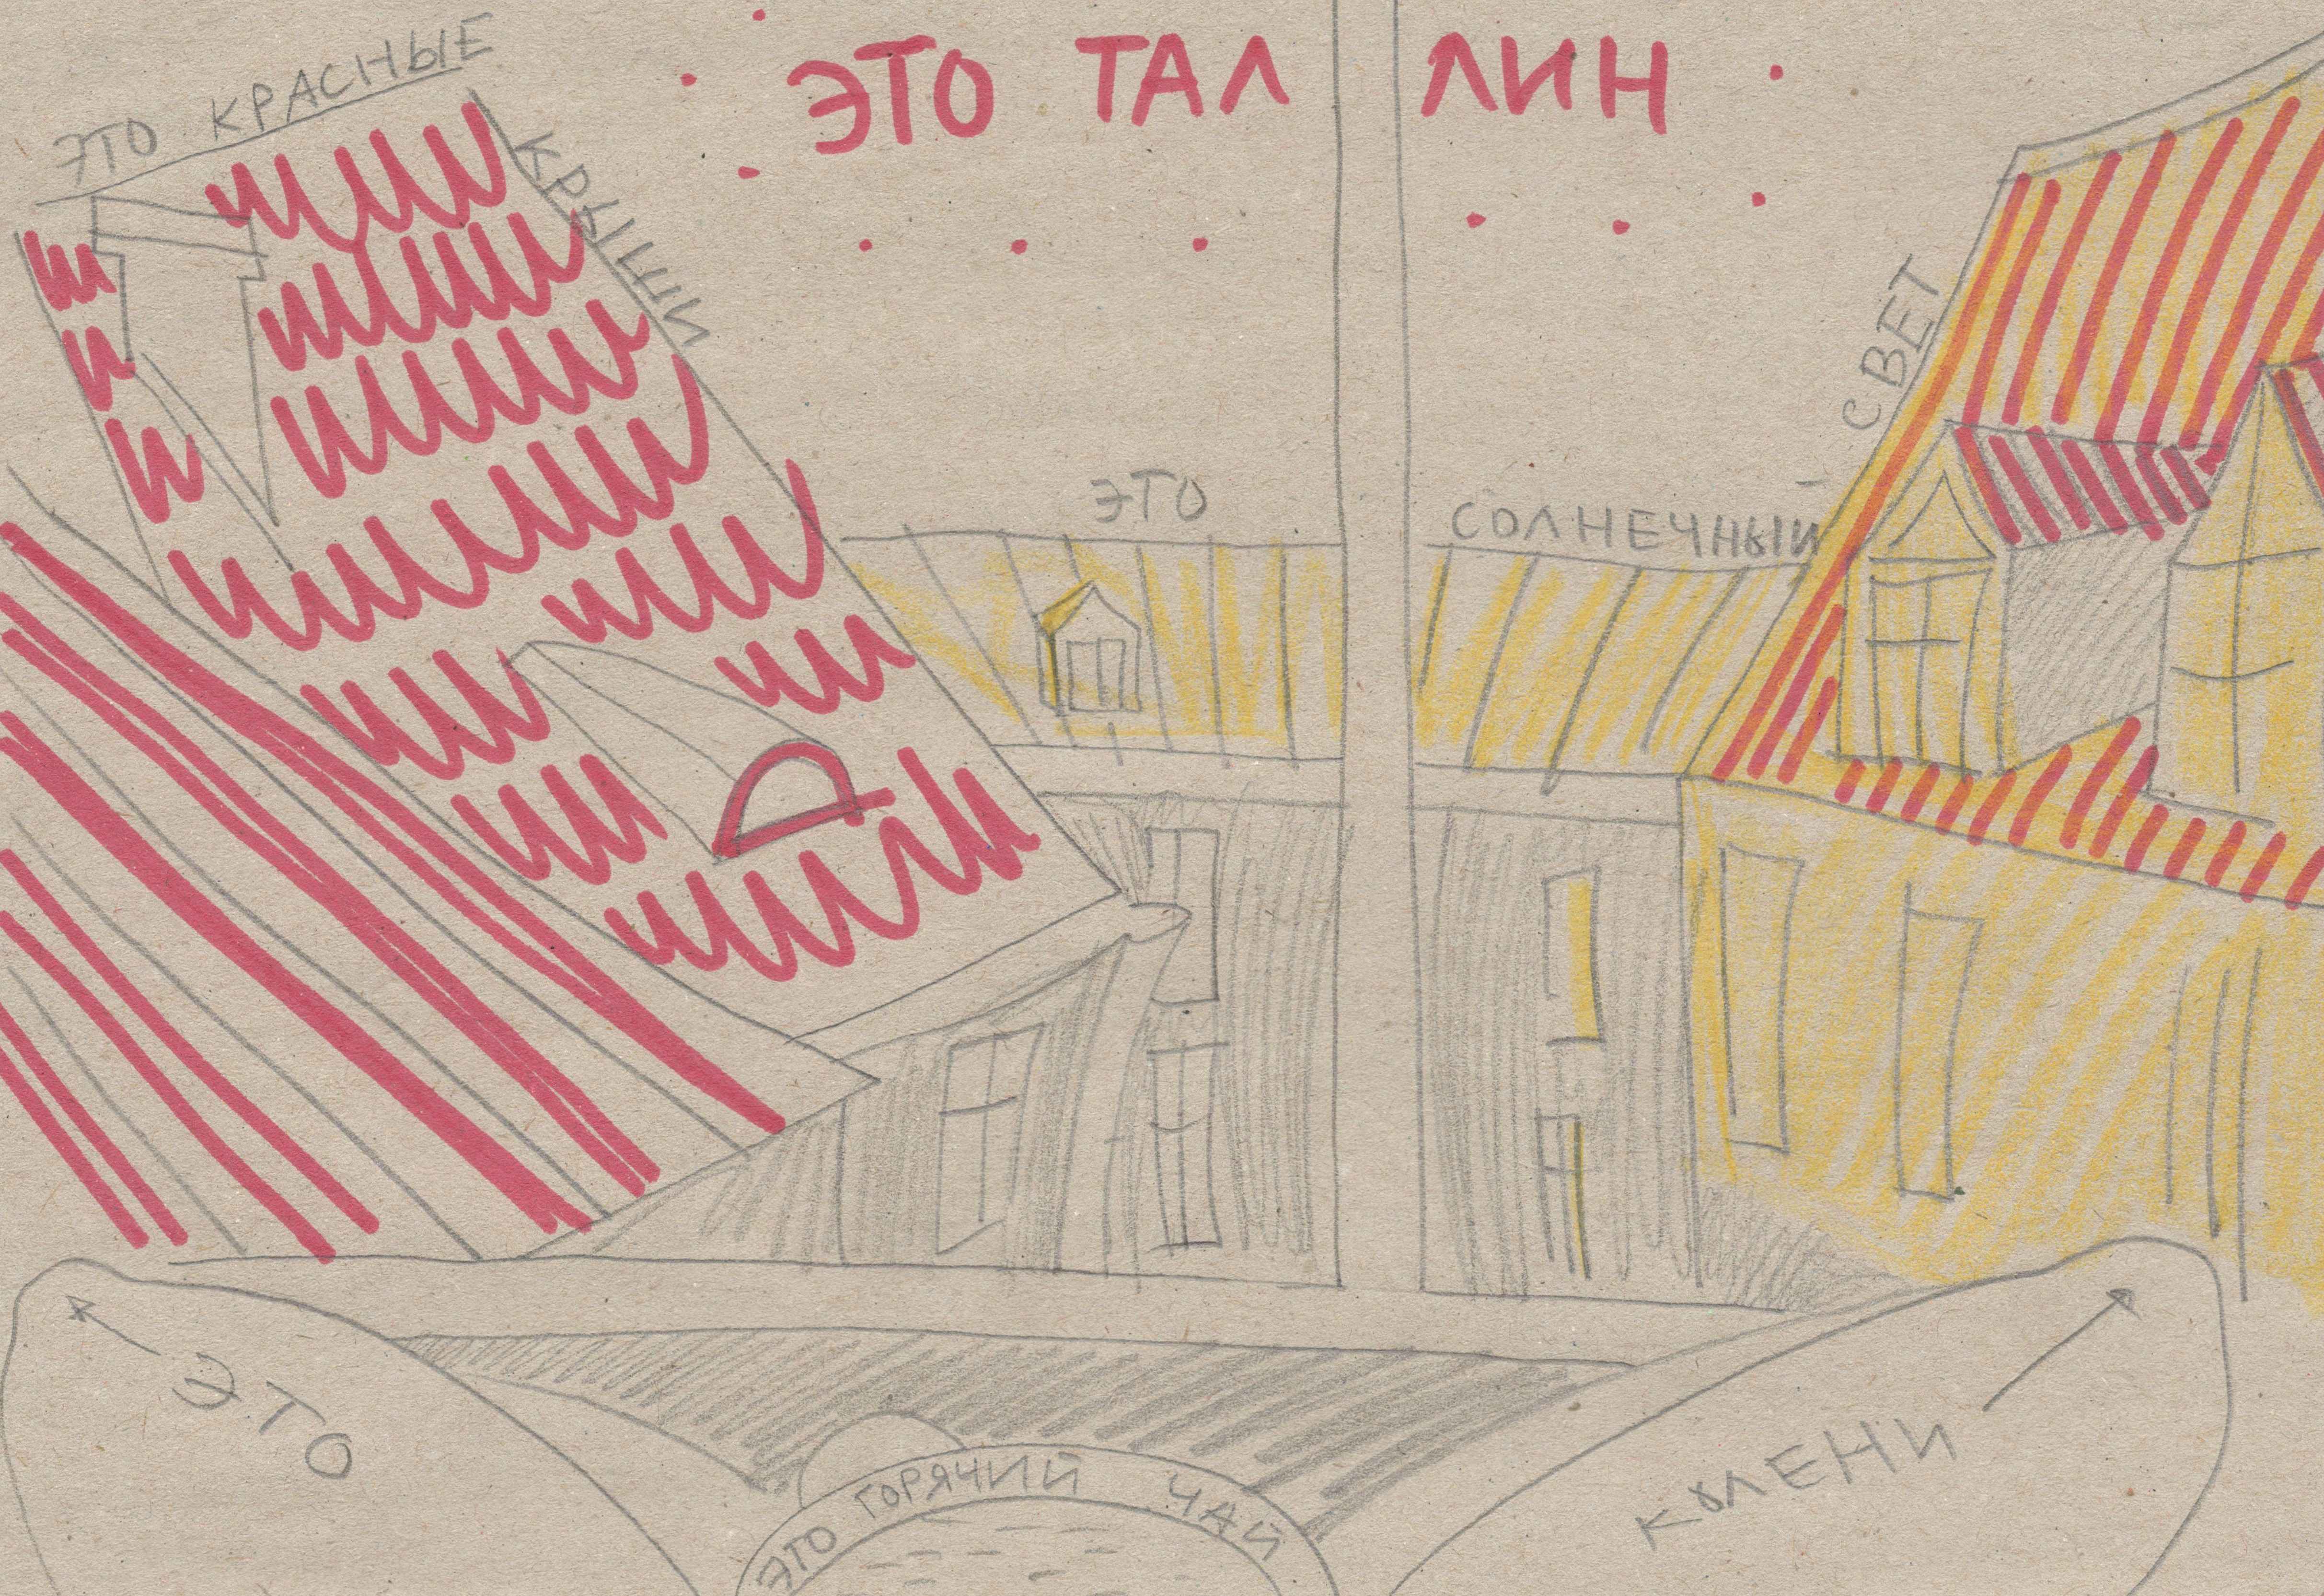 ЭТО ТАЛ ЛИН
ЭТО КРАСНЫЕ
КРЫШИ
ЭТО СОЛНЕЧНЫЙ
СВЕТ
ЭТО КОЛЕНИ
ЭТО ГОРЯЧИЙ ЧАЙ